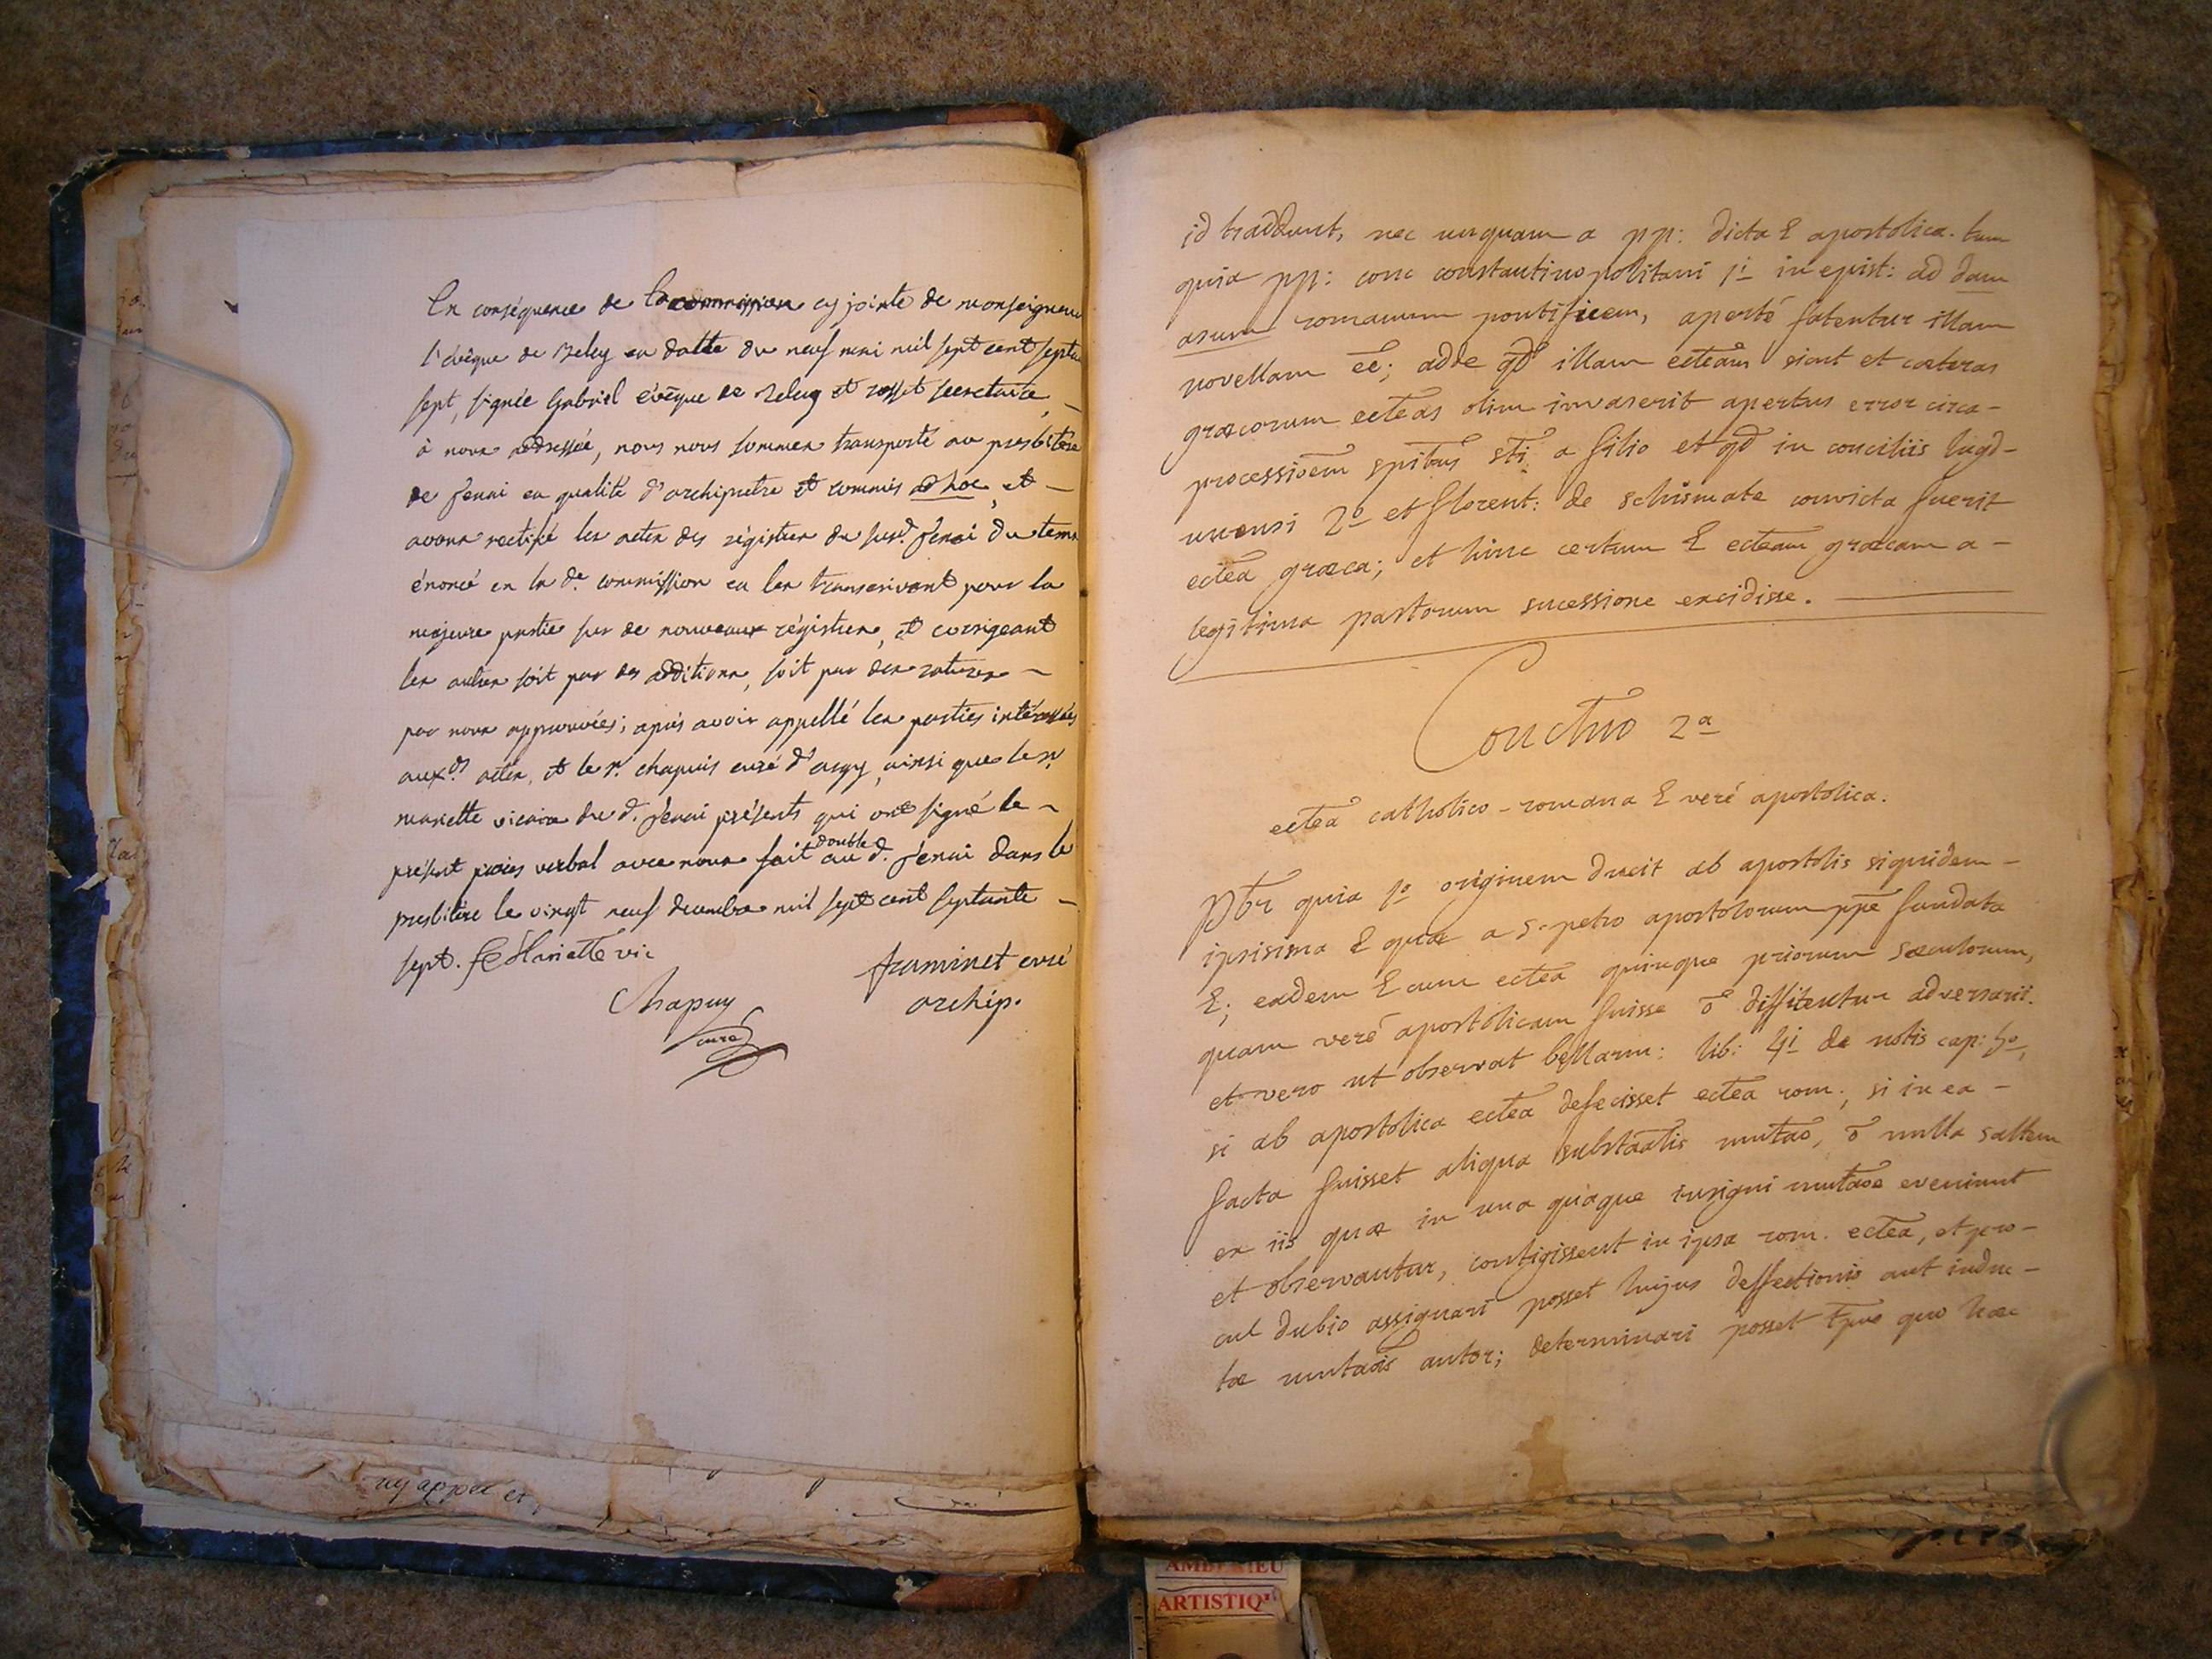 En conséquence de la commission cy jointe de monseigneur
l'évêque de Beley en datte du neuf mai mil sept cent septante
sept, signée Gabriel évêque de Beley et rosset secretaire, –
à nous addressée, nous nous sommes transporté au presbitère
de Jenai en qualité d'archiprêtre et commis ad hoc, et –
avons rectifié les actes des régistres du susd. Jenai du tems
énoncé en la de. commission en les transcrivant pour la
majeure partie sur de nouveaux régistres, et corrigeant
les autres soit par des additions, soit par des ratures –
par nous approuvées; après avoir appellé les parties intéressées
auxds. actes, et le sr. chapuis curé d'argy, ainsi que le sr.
mariette vicaire du d. Jenai présents qui ont signé le –
présent procès verbal avec nous fait double au d. Jenai dans le
presbitère le vingt neuf decembre mil sept cent septante –
sept. Mariette vic
framinet curé
archip.
Chapuy
curé
ny appel et
id traddunt, nec unquam a pp: dicta E apostolica. tum
quia pp: conc constantinopolitani 1i in epist: ad dam
asum romanum pontificem, aperté fatentur illam
novellam eē; adde qd illam ecteām sicut et cæteras
græcorum ecteās olim invaserit apertus error circa –
processioēm spitus sti a filio et qd in conciliis lugd-
unensi 2o et florent: de schismate convicta fuerit
ecteā græca; et hinc certum E ecteām græcam a –
legitima pastorum sucessione excidisse.
Conctuo 2a
ecteā catholico-romana E veré apostolica.
Pbtr quia 1o originem ducit ab apostolis siquidem –
ipsisima E quæ a S. petro apostolorum ppe fundata
E; eadem E cum ecteā quinque priorum sæculorum,
quam veré apostolicam fuisse ō diffitentur adversarii.
et vero ut observat bellarm: lib: 4i de notis cap: 5o,
si ab apostolica ecteā defecisset ecteā rom., si in ea –
facta fuisset aliqua substaālis mutaō, ō nulla saltem
ex iis quæ in una quaque insigni mutaōe eveniunt
et observantur, contigissent in ipsa rom. ecteā, et pro-
cul dubio assignari posset hujus deffectionis aut indu-
tæ mutaōis autor; determinari posset tpus quo hæc
AMBERIEU
ARTISTIQU